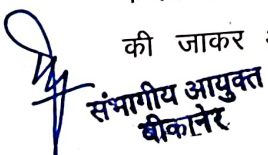 की जाकर
संभागीय आयुक्त
बीकानेर